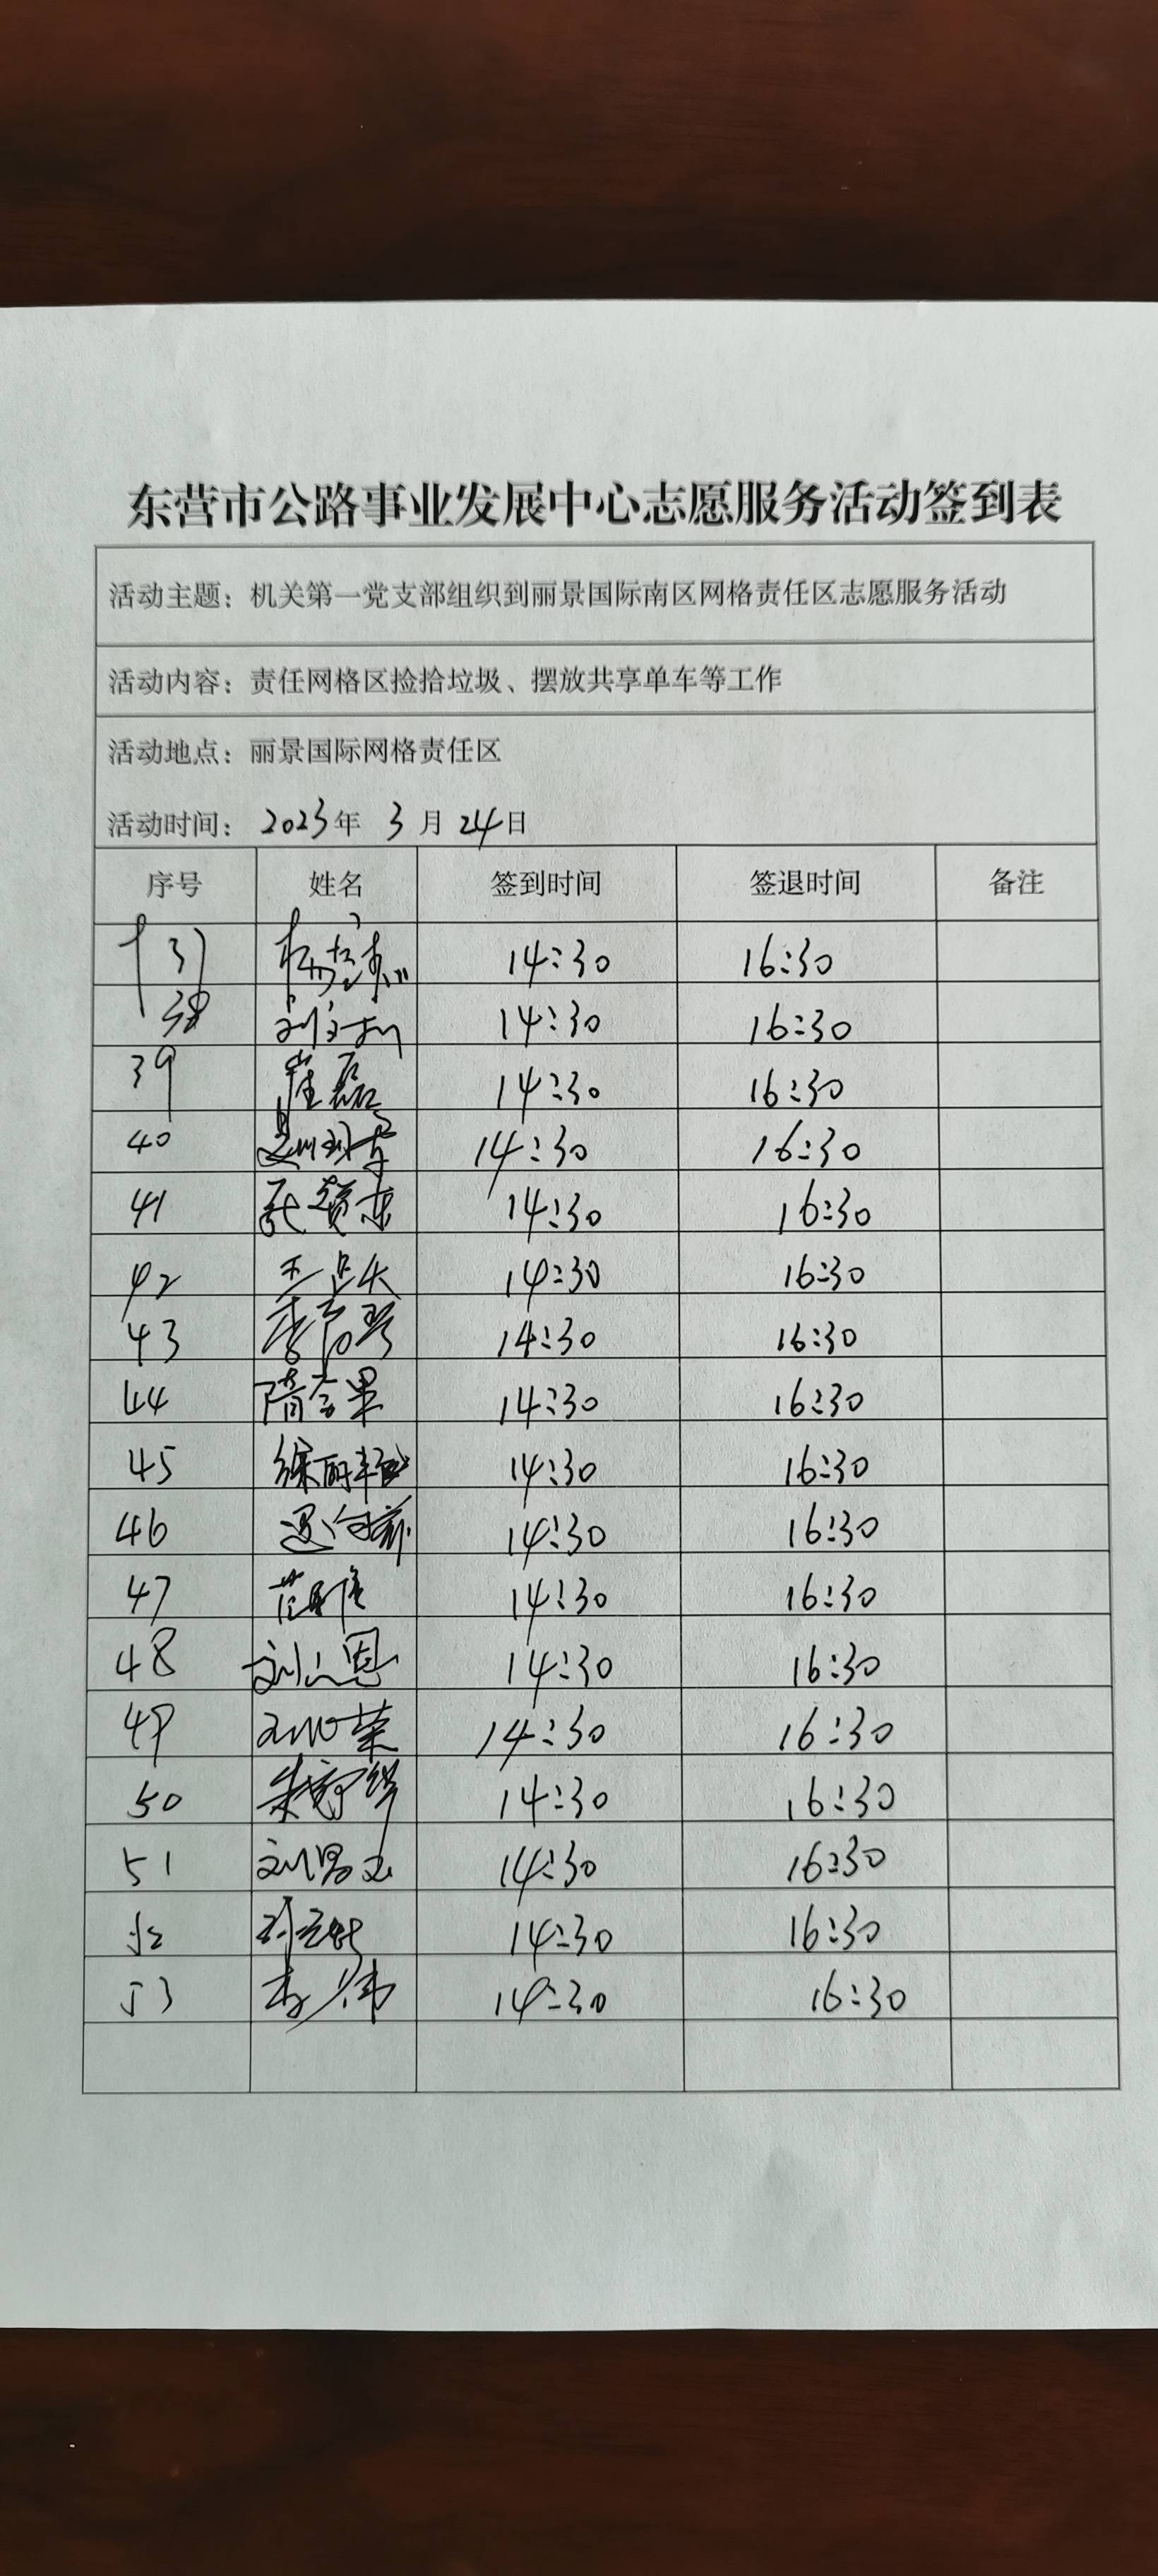 东营市公路事业发展中心志愿服务活动签到表
活动主题：机关第一党支部组织到丽景国际南区网格责任区志愿服务活动
活动内容：责任网格区捡拾垃圾、摆放共享单车等工作
活动地点：丽景国际网格责任区
活动时间：2023年 3月24日
序号 姓名 签到时间 签退时间 备注
37 14:30 16:30
38 14:30 16:30
39 崔磊 14:30 16:30
40 14:30 16:30
41 14:30 16:30
42 14:30 16:30
43 14:30 16:30
44 14:30 16:30
45 14:30 16:30
46 14:30 16:30
47 14:30 16:30
48 14:30 16:30
49 14:30 16:30
50 14:30 16:30
51 14:30 16:30
52 14:30 16:30
53 14:30 16:30